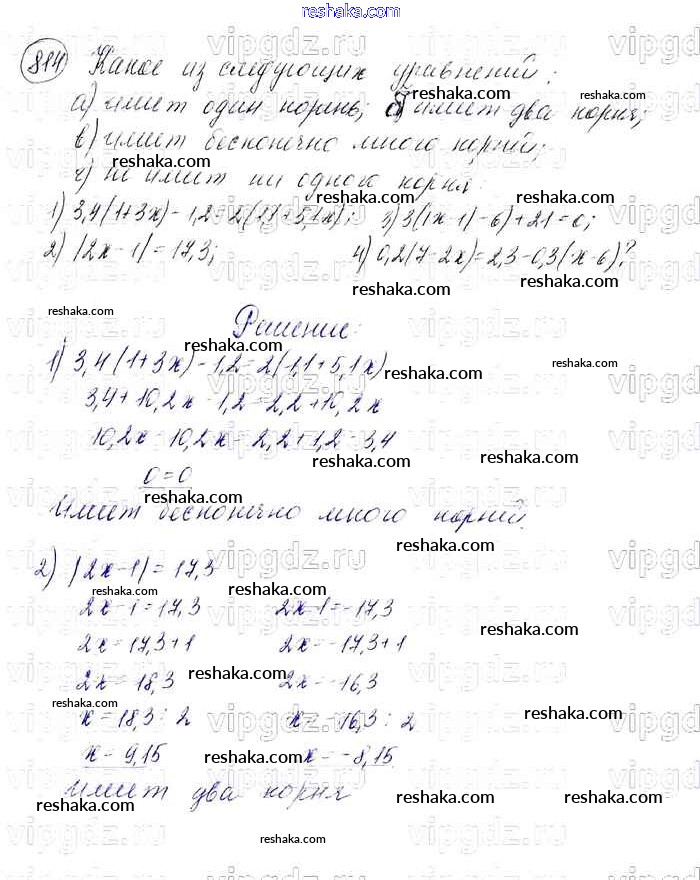 reshaka.com
814 Какое из следующих уравнений:
а) имеет один корень; б) имеет два корня;
в) имеет бесконечно много корней;
г) не имеет ни одного корня:
1) 3,4(1+3x) - 1,2 = 2(1,1+5,1x); 3) 3(|x-1|-6)+21=0;
2) |2x-1| = 17,3; 4) 0,2(7-2x)=2,3-0,3(x-6)?
Решение:
1) 3,4(1+3x) - 1,2 = 2(1,1+5,1x)
3,4+10,2x-1,2=2,2+10,2x
10,2x-10,2x=2,2+1,2-3,4
0=0
Имеет бесконечно много корней.
2) |2x-1| = 17,3
2x-1=17,3 2x-1=-17,3
2x=17,3+1 2x=-17,3+1
2x=18,3 2x=-16,3
x=18,3:2 x=-16,3:2
x=9,15 x=-8,15
Имеет два корня